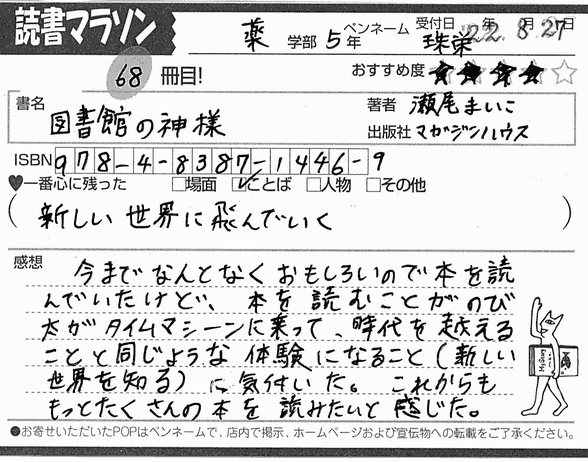 読書マラソン
薬 学部 5年 ペンネーム 珠栄 受付日 '22年 8月 27
68 冊目! おすすめ度 ★★★★☆
書名 図書館の神様
著者 瀬尾まいこ
出版社 マガジンハウス
ISBN 978-4-8387-1446-9
♥一番心に残った □場面 ☑ことば □人物 □その他
(新しい世界に飛んでいく)
感想 今までなんとなくおもしろいので本を読
んでいたけど、本を読むことがのび
太がタイムマシーンに乗って、時代を越える
ことと同じような体験になること(新しい
世界を知る)に気付いた。これからも
もっとたくさんの本を読みたいと感じた。
●お寄せいただいたPOPはペンネームで、店内で掲示、ホームページおよび宣伝物への転載をご了承ください。